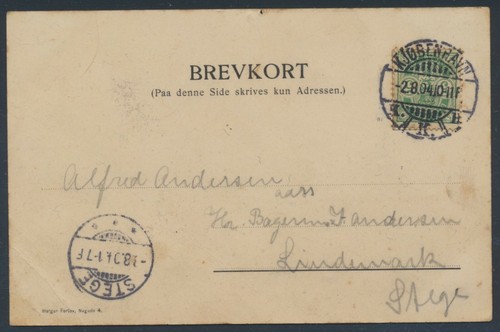 BREVKORT
(Paa denne Side skrives kun Adressen.)
KJØBENHAVN
-2.8.04.10-11F
K.
Alfred Andersen
adr.
Hr. Bagerm. F. Andersen
Lindemark
Stege
STEGE
Holger Ferløv, Nygade 4.